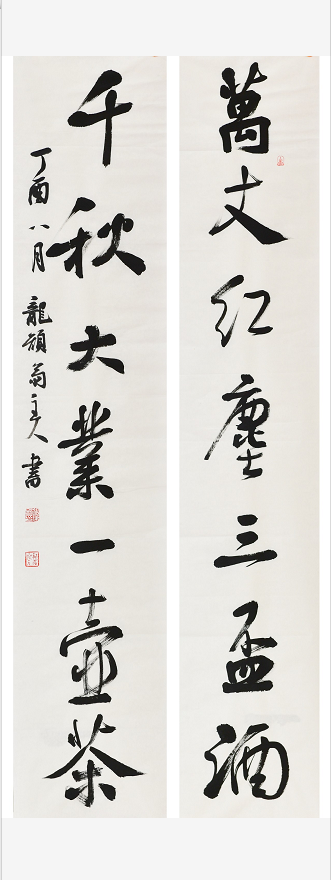 萬丈紅塵三盃酒
千秋大業一壺茶
丁酉八月龍頭翁主人書